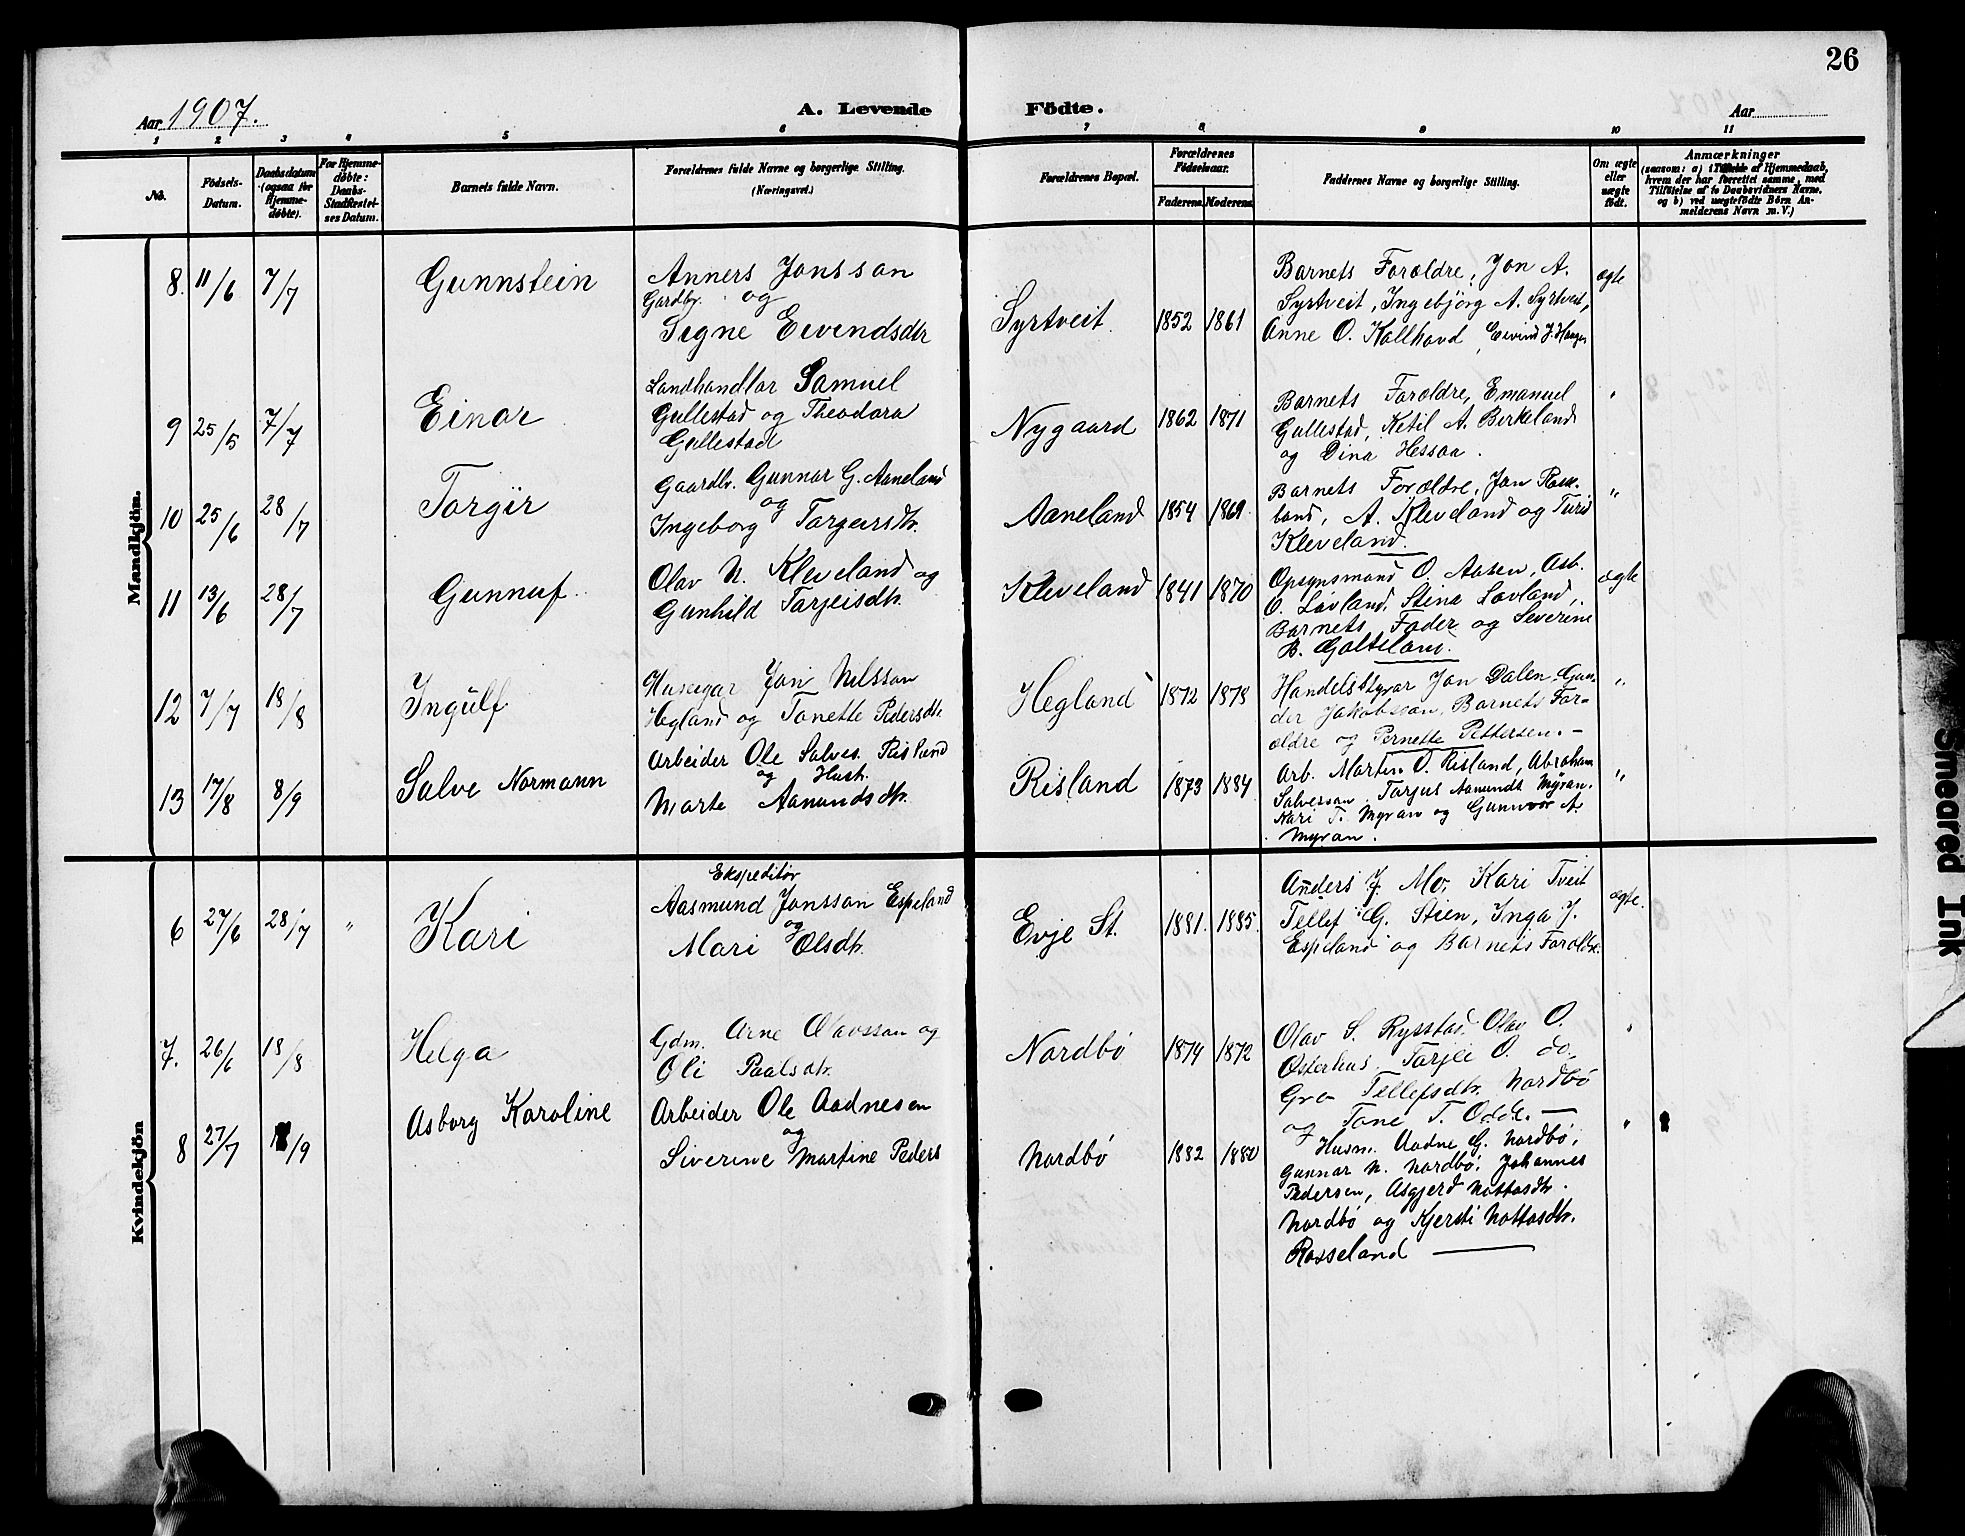 26
Aar 1907.
A. Levende Födte.
Aar
1 2 3 4 5 6 7 8 9 10 11
No.
Födsels-Datum.
Daabsdatum (ogsaa for Hjemme-døbte).
For Hjemme-døbte: Daabs-Stadfæstel-ses Datum.
Barnets fulde Navn.
Forældrenes fulde Navne og borgerlige Stilling.
(Næringsvei.)
Forældrenes Bopæl.
Forældrenes Födselsaar.
Faderens. Moderens.
Faddernes Navne og borgerlige Stilling.
Om ægte eller uægte födt.
Anmærkninger
(saasom: a) Tilfælde af Hjemmedaab,
hvem der har forrettet samme, med
Tilföielse af to Daabsvidners Navne.
og b) ved uægtefödte Börn An-
melderens Navn m. V.)
Mandkjön.
8. 11/6 7/7 Gunnstein
Anners Jonsson
Gardbr. og
Signe Eivendsdtr
Syrtveit. 1852 1861
Barnets Forældre, Jon A.
Syrtveit, Ingebjörg A. Syrtveit,
Anne O. Kallhovd, Eivind J.
ægte
9 25/5 7/7 Einar
Landhandlar Samuel
Gullestad og Theodora
Gullestad
Nygaard 1862 1871
Barnets Forældre, Emanuel
Gullestad, Ketil A. Birkeland
og Dina Hessaa.
"
10 25/6 28/7 Torgir
Gaardbr. Gunnar G. Aaneland
og
Ingeborg Tarjeisdtr.
Aaneland 1854 1869
Barnets Forældre, Jon Rosse-
land, A. Kleveland og Turid
Kleveland.
"
11 13/6 28/7 Gunnuf
Olav N. Kleveland og
Gunhild Tarjeisdtr.
Kleveland 1841 1870
Opsynsmand O. Aasen, Asb.
O. Løvland, Stina Lovland,
Barnets Fader og Severine
B. Galteland.
ægte
12 7/7 18/8 Ingulf
Huseigar Jon Nilsson
Hegland og Tonette Pedersdtr.
Hegland 1872 1878
Handelsstyrar Jon Dalen, Gun-
der Jakobsson, Barnets For-
ældre og Pernette Pettersen. -
"
13 17/8 8/9 Salve Normann
Arbeider Ole Salves. Risland
og Hust.
Marte Aanundsdtr.
Risland 1873 1884
Arb. Marten O. Risland, Abraham
Salvesson, Tarjus Aanunds Myran.
Kari T. Myran og Gunnvor A.
Myran.
"
Kvindekjön
6 27/6 28/7 " Kari
Ekspeditör
Aasmund Jonsson Espeland
og
Mari Olsdtr.
Evje St. 1881. 1885.
Anders J. Mo, Kari Tveit
Tellef G. Stien, Inga J.
Espeland og Barnets Forældre.
ægte.
7. 26/6 18/8 Helga
Gdm. Arne Olavsson og
Oli Paalsdtr.
Nordbö 1874 1872
Olav S. Rysstad, Olav O.
Østerhus, Tarjei O. do.,
Gro Tellefsdtr. Nordbö
og Tone T. Odde. —
"
8 27/7 /9 Asborg Karoline
Arbeider Ole Aadnesen
og
Siverine Martine Peders
Nordbö 1882 1880
Husm. Aadne G. Nordbö,
Gunnar N. Nordbö, Johannes
Pedersen, Asgjerd Nottosdtr.
Nordbö og Kjersti Nottosdtr.
Rosseland —
"
Smeared Ink